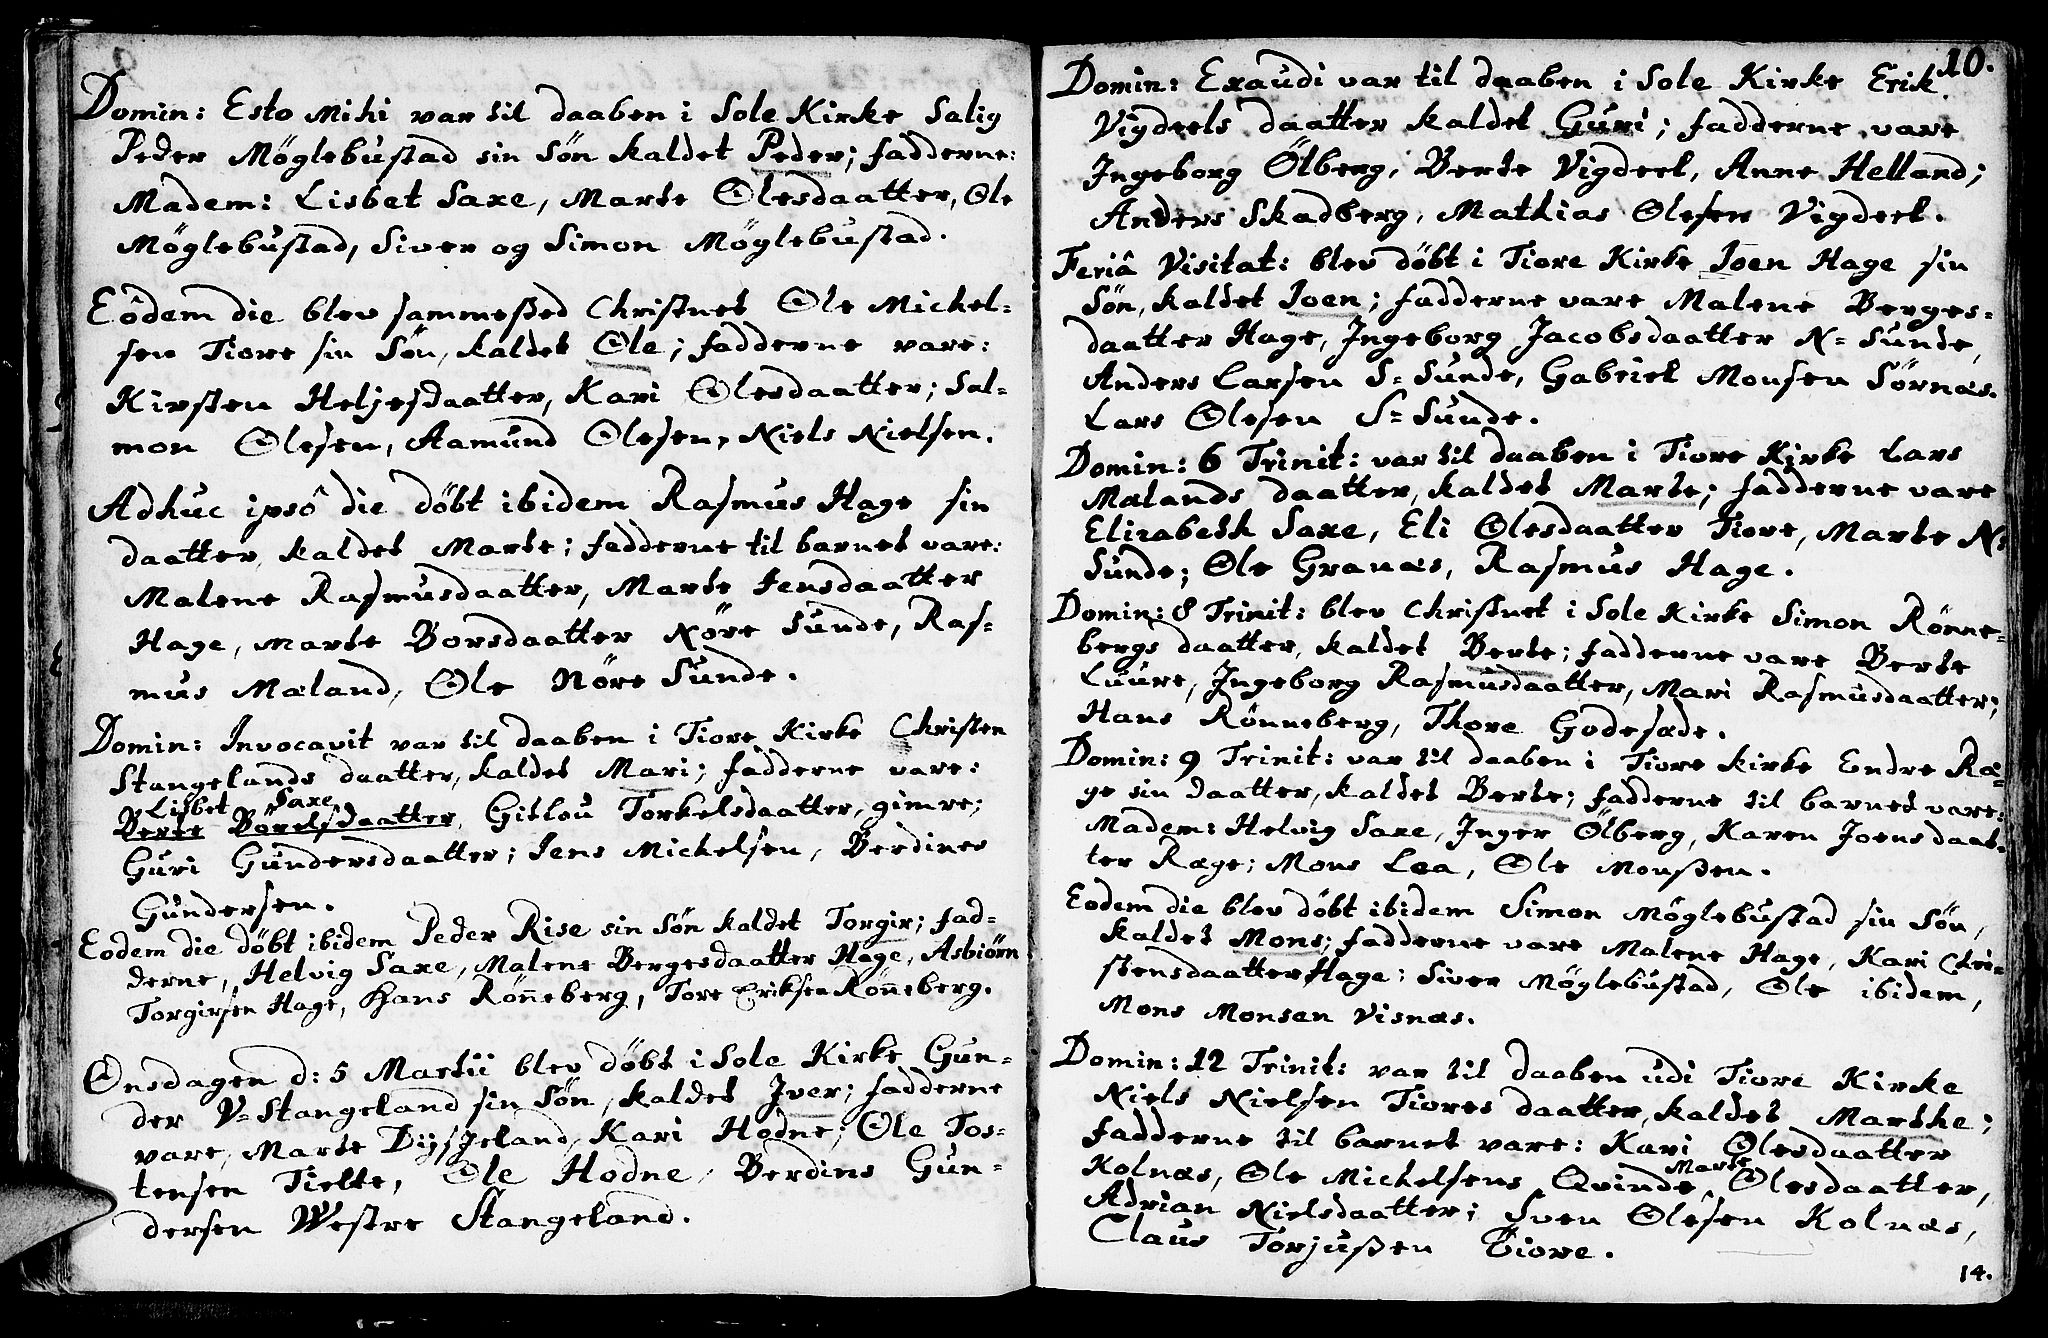 Domin: Esto Mihi var til daaben i Sole Kirke Salig
Peder Möglebustad sin Sön kaldet Peder; fadderne:
Madem: Lisbet Saxe, Marte Olesdaatter, Ole
Möglebustad, Siver og Simon Möglebustad.
Eôdem die blev sammested Christnet Ole Michel=
sen Tiore sin Sön, kaldet Ole; fadderne vare:
Kirsten Heljesdaatter, Kari Olesdaatter; Sal=
mon Olesen, Aamund Olesen, Niels Nielsen.
Adhuc ipsô die döbt ibidem Rasmus Hage sin
daatter, kaldet Marte; fadderne til barnet vare:
Malene Rasmusdaatter, Marte Jensdaatter
Hage, Marte Borsdaatter Nöre Sunde, Ras=
mus Mæland, Ole Nöre Sunde.
Domin: Invocavit var til daaben i Tiore Kirke Christen
Stangelands daatter, kaldet Mari; fadderne vare:
Lisbet Saxe
Berte Börelsdaatter, Gitlou Torkelsdaatter, gimre;
Guri Gundersdaatter; Jens Michelsen, Berdines
Gundersen.
Eodem die döbt ibidem Peder Rise sin Sön kaldet Torgir; fad=
derne, Helvig Saxe, Malene Bergesdaatter Hage, Asbiörn
Torgirsen Hage, Hans Rönneberg, Tore Eriksen Rönneberg.
Onsdagen d: 5 Martii blev döbt i Sole Kirke Gun=
der V=Stangeland sin Sön, kaldet Iver; fadderne
vare, Marte Dysjeland, Kari Hodne; Ole Tos=
tensen Tielte, Ole Hodne, Berdins Gun=
dersen Westre Stangeland.
10.
Domin: Exaudi var til daaben i Sole Kirke Erik
Vigdeels daatter kaldet Guri; fadderne vare
Ingeborg Ölberg, Berte Vigdeel, Anne Helland;
Anders Skadberg, Mathias Olesen Vigdeel.
Feriâ Visitat: blev döbt i Tiore Kirke Joen Hage sin
Sön, kaldet Joen; fadderne vare Malene Berges=
daatter Hage, Ingeborg Jacobsdaatter N=Sunde,
Anders Larsen S=Sunde, Gabriel Monsen Sörnæs.
Lars Olesen S=Sunde.
Domin: 6 Trinit: var til daaben i Tiore Kirke Lars
Mælands daatter, kaldet Marte; fadderne vare
Elizabeth Saxe, Eli Olesdaatter Tiore, Marte N:
Sunde; Ole Granæs, Rasmus Hage.
Domin: 8 Trinit: blev Christnet i Sole Kirke Simon Rönne=
bergs daatter, kaldet Berte; fadderne vare Berte
Luure, Ingeborg Rasmusdaatter, Mari Rasmusdaatter;
Hans Rönneberg, Thore Godesæde.
Domin: 9 Trinit: var til daaben i Tiore kirke Endre Ræ=
ge sin daatter, kaldet Berte; fadderne til barnet vare:
Madem: Helvig Saxe, Inger Ölberg, Karen Joensdaat=
ter Ræge; Mons Lea, Ole Monssen.
Eodem die blev döbt ibidem Simon Möglebustad sin Sön,
kaldet Mons; fadderne vare Malene Hage, Kari Chri=
stensdaatter Hage; Siver Möglebustad, Ole ibidem,
Mons Monsen Visnæs.
Domin: 12 Trinit: var til daaben udi Tiore Kirke
Niels Nielsen Tiores daatter, kaldet Marthe;
fadderne til barnet vare: Kari Olesdaatter
Kolnæs, Ole Michelsens Qvinde Marte Olesdaatter,
Adrian Nielsdaatter; Sven Olesen Kolnæs,
Claus Torjussen Tiore.
14.